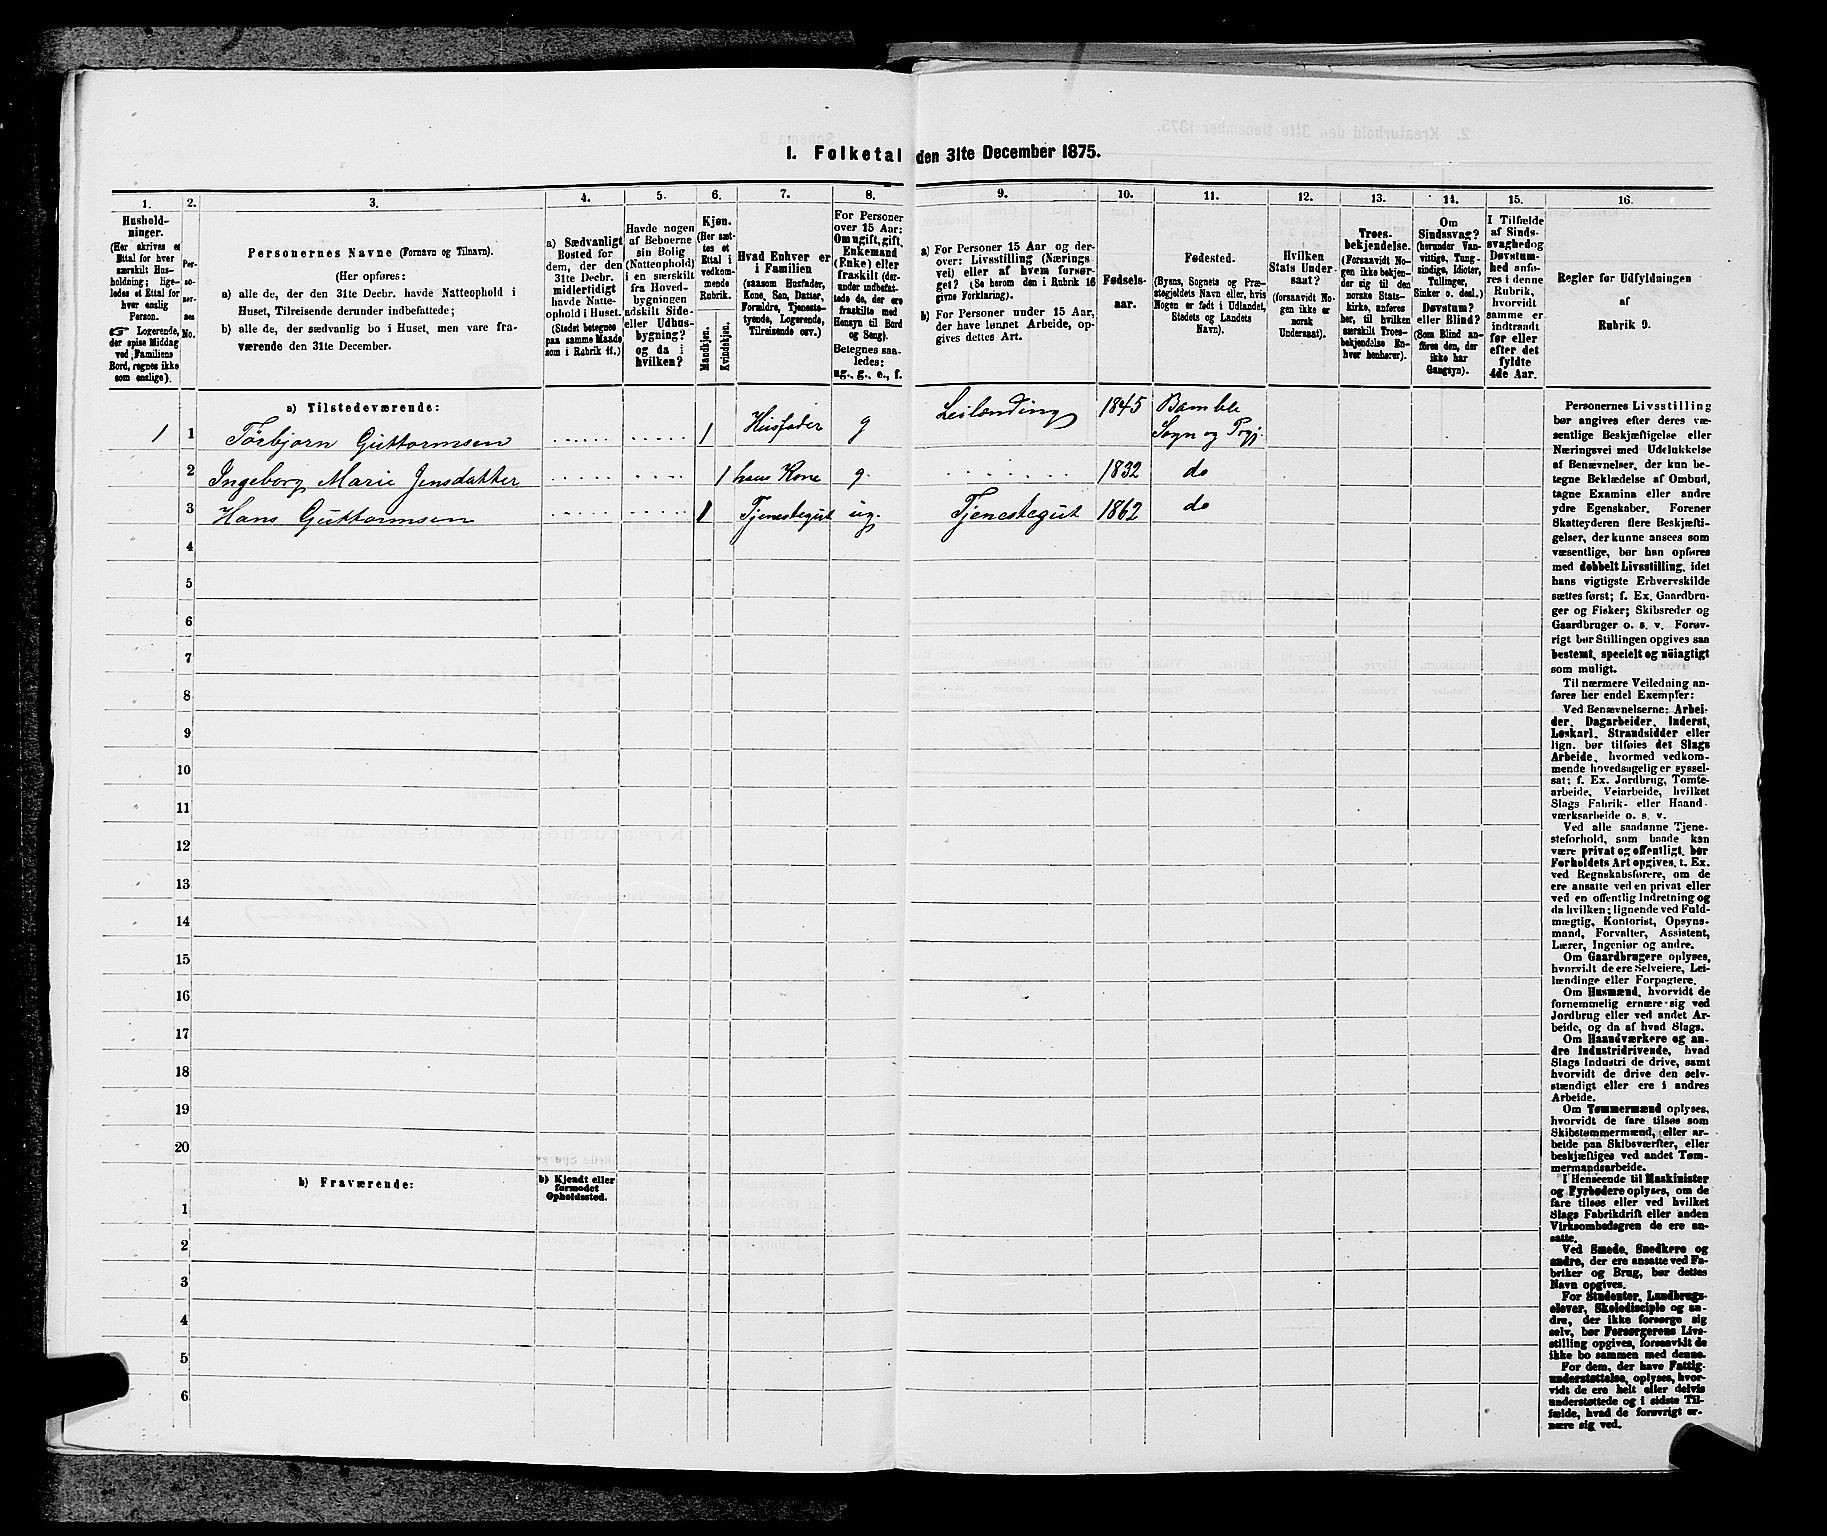 I. Folketal den 31te December 1875.
1.
Hushold-
ninger.
(Her skrives et
Ettal for hver
særskilt Hus-
holdning; lige-
ledes et Ettal for
hver enslig
Person.
☞ Logerende,
der spise Middag
ved Familiens
Bord, regnes ikke
som enslige).
2.
Per-
so-
ner-
nes
No.
3.
Personernes Navne (Fornavn og Tilnavn).
(Her opføres:
a) alle de, der den 31te Decbr. havde Natteophold i
Huset, Tilreisende derunder indbefattede;
b) alle de, der sædvanlig bo i Huset, men vare fra-
værende den 31te December.
4.
a) Sædvanligt
Bosted for
dem, der den
31te Decbr.
midlertidigt
havde Natte-
ophold i Huset.
(Stedet betegnes
paa samme Maade
som i Rubrik 11.)
5.
Havde nogen
af Beboerne
sin Bolig
(Natteophold)
i en særskilt
fra Hoved-
bygningen
adskilt Side-
eller Udhus-
bygning?
og da i
hvilken?
6.
Kjøn.
(Her sæt-
tes et
Ettal i
vedkom-
mende
Rubrik.
Mandkjøn.
Kvindekjøn.
7.
Hvad Enhver er
i Familien
(saasom Husfader,
Kone, Søn, Datter,
Forældre, Tjeneste-
tyende, Logerende,
Tilreisende osv.)
8.
For Personer
over 15 Aar:
Om ugift, gift,
Enkemand
(Enke) eller
fraskilt (der-
under indbefat-
tede de, der ere
fraskilte med
Hensyn til Bord
og Seng).
Betegnes saa-
ledes:
ug., g., e., f.
9.
a) For Personer 15 Aar og der-
over: Livsstilling (Nærings
vei) eller af hvem forsør-
get? (Se herom den i Rubrik 16
givne Forklaring).
b) For Personer under 15 Aar,
der have lønnet Arbeide, op-
gives dettes Art.
10.
Fødsels-
aar.
11.
Fødested.
(Byens, Sognets og Præ-
stegjeldets Navn eller, hvis
Nogen er født i Udlandet,
Stedets og Landets
Navn).
12.
Hvilken
Stats Under-
saat?
(forsaavidt No-
gen ikke er
norsk
Undersaat).
13.
Troes-
bekjendelse.
(Forsaavidt No-
gen ikke bekjen-
der sig til den
norske Stats-
kirke, anføres
her, til hvilken
særskilt Troes-
bekjendelse En-
hver henhører).
14.
Om
Sindssvag?
(herunder Van-
vittige, Tung-
sindige, Idioter,
Tullinger,
Sinker o. desl.)
Døvstum?
eller Blind?
(Som Blind an-
føres den, der
ikke har
Gangsyn).
15.
I Tilfælde
af Sinds-
svaghed og
Døvstum-
hed anfø-
res i denne
Rubrik,
hvorvidt
samme er
indtraadt
før eller
efter det
fyldte
4de Aar.
16.
Regler for Udfyldningen
af
Rubrik 9.
a) Tilstedeværende:
1 1 Torbjorn Guttormsen 1 Husfader g Leilænding 1845 Bamble
Sogn og Prgj.
2 Ingeborg Marie Jensdatter 1 hans Kone g. 1832 do
3 Hans Guttormsen 1 Tjenestegut ug. Tjenestegut 1862 do
4
5
6
7
8
9
10
11
12
13
14
15
16
17
18
19
20
b) Fraværende:
b) Kjendt eller
formodet
Opholdssted.
1
2
3
4
5
6
Personernes Livsstilling
bør angives efter deres væ-
sentlige Beskjæftigelse eller
Næringsvei med Udelukkelse
af Benævnelser, der kun be-
tegne Beklædelse af Ombud,
tagne Examina eller andre
ydre Egenskaber. Forener
Skatteyderen flere Beskjæfti-
gelser, der kunne ansees som
væsentlige, bør han opføres
med dobbelt Livsstilling, idet
hans vigtigste Erhvervskilde
sættes først; f. Ex. Gaardbru-
ger og Fisker; Skibsreder og
Gaardbruger o. s. v. Forøv-
rigt bør Stillingen opgives saa
bestemt, specielt og nöiagtigt
som muligt.
Til nærmere Veiledning an-
føres her endel Exempler:
Ved Benævnelserne: Arbei-
der, Dagarbeider, Inderst,
Løskarl, Strandsidder eller
lign. bør tilføies det Slags
Arbeide, hvormed vedkom-
mende hovedsagelig er syssel-
sat; f. Ex. Jordbrug, Tomte-
arbeide, Veiarbeide, hvilket
Slags Fabrik- eller Haand-
værksarbeide o. s. v.
Ved alle saadanne Tjene-
steforhold, som baade kan
være privat og offentligt, bør
Forholdets Art opgives, t. Ex.
ved Regnskabsførere, om de
ere ansatte ved en privat eller
ved en offentlig Indretning og
da hvilken; lignende ved Fuld-
mægtig, Kontorist, Opsyns-
mand, Forvalter, Assistent,
Lærer, Ingeniør og andre.
Om Gaardbrugere oplyses,
hvorvidt de ere Selveiere, Lei-
lændinge eller Forpagtere.
Om Husmænd, hvorvidt de
fornemmelig ernære sig ved
Jordbrug eller ved andet Ar-
beide, og da af hvad Slags.
Om Haandværkere og an-
dre Industridrivende, hvad
Slags Industri de drive, samt
hvorvidt de drive den selv-
stændigt eller ere i andres
Arbeide.
Om Tømmermænd oplyses,
hvorvidt de fare tilsøs som
Skibstømmermænd, eller ar-
beide paa Skibsværfter, eller
beskjæftiges ved andet Tøm-
mermandsarbeide.
I Henseende til Maskinister
og Fyrbødere oplyses, om de
fare tilsøs eller ved hvilket
Slags Fabrikdrift eller anden
Virksombedsgren de ere an-
satte.
Ved Smede, Snedkere og
andre, der ere ansatte ved Fa-
briker og Brug, bør dettes
Navn opgives.
For Studenter, Landbrugs-
elever, Skoledisciple og an-
dre, der ikke forsørge sig
selv, bør Forsørgerens Livs-
stilling opgives, forsaavidt de
ikke bo sammen med denne.
For dem, der have Fattig-
understøttelse, oplyses, hvor-
vidt de ere helt eller delvis
understøttede og i sidste Til-
fælde, hvad de forøvrigt er-
nære sig ved.